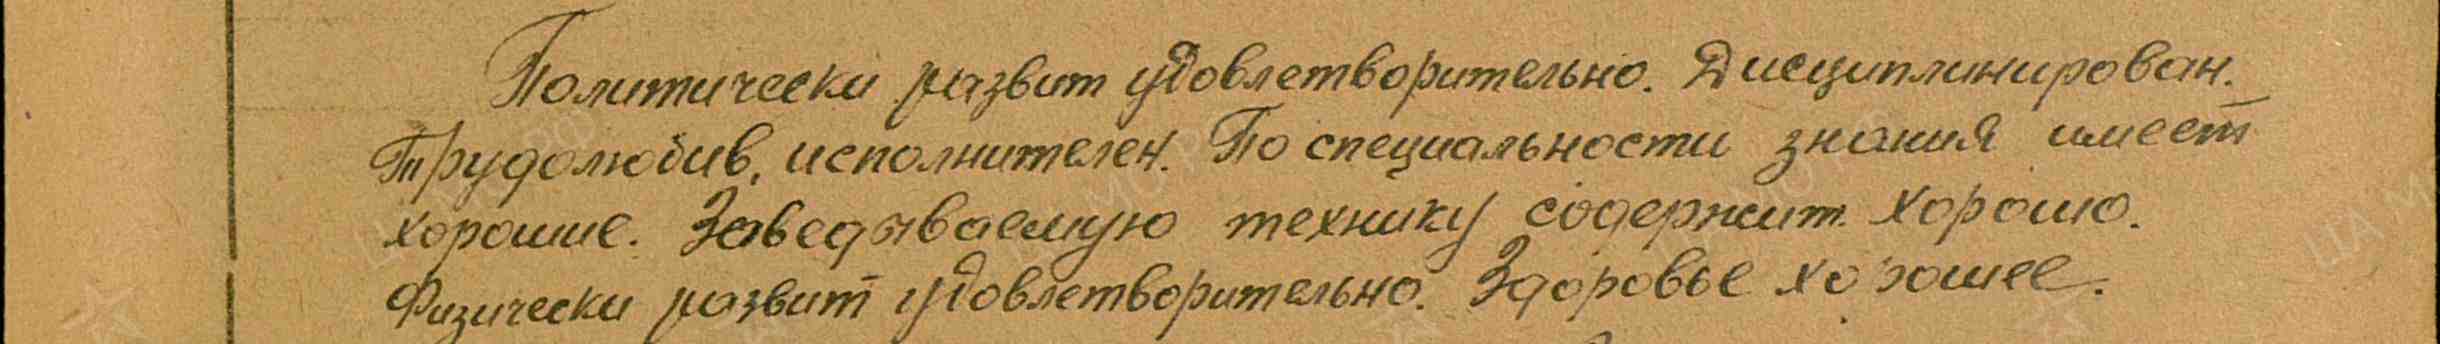 Политически развит удовлетворительно. Дисциплинирован.
Трудолюбив, исполнителен. По специальности знания имеет
хорошие. Заведываемую технику содержит хорошо.
Физически развит удовлетворительно. Здоровье хорошее.